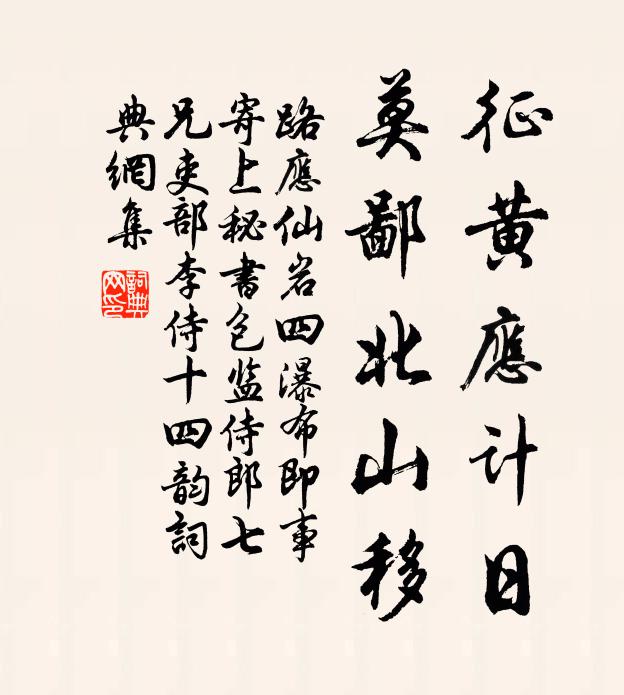 征黄應计日
莫鄙北山移
路應仙岩四瀑布即事
寄上秘書包监侍郎七
兄吏部李侍十四韵詞
典網集
詞典网印